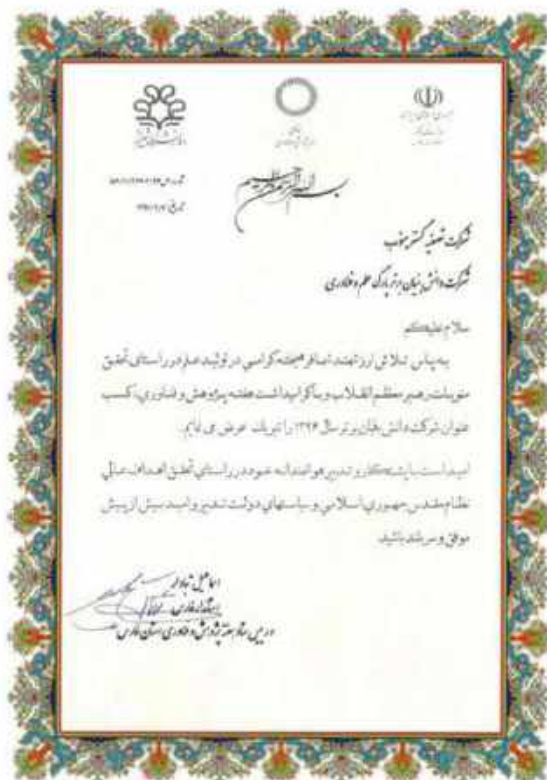 جمهوری اسلامی ایران
بسم الله الرحمن الرحیم
شرکت تصفیه گستر جنوب
شرکت دانش بنیان برتر پارک علم و فناوری
سلام علیکم
به پاس تلاش ارزشمند در تولید علم در راستای تحقق
منویات رهبر معظم انقلاب و با گرامیداشت هفته پژوهش و فناوری، کسب
عنوان شرکت دانش بنیان برتر سال ۱۳۹۶ را تبریک عرض می نمایم.
امید است با پشتکار و تدبیر خود در راستای تحقق اهداف عالی
نظام مقدس جمهوری اسلامی و سیاستهای دولت تدبیر و امید بیش از پیش
موفق و سربلند باشید.
اسماعیل تبادار
استاندار فارس
و رییس ستاد هفته پژوهش و فناوری استان فارس